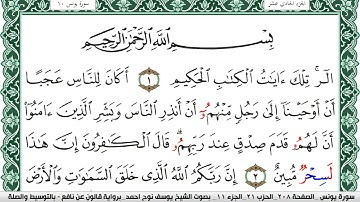 الجزء الحادي عشر
سورة يونس ١٠
بِسْمِ اللَّهِ الرَّحْمَٰنِ الرَّحِيمِ
الٓر تِلْكَ ءَايَٰتُ الْكِتَٰبِ الْحَكِيمِ ١ أَكَانَ لِلنَّاسِ عَجَبًا
أَنْ أَوْحَيْنَا إِلَىٰ رَجُلٍ مِنْهُمُۥ أَنْ أَنذِرِ النَّاسَ وَبَشِّرِ الَّذِينَ ءَامَنُوٓا
أَنَّ لَهُمُۥ قَدَمَ صِدْقٍ عِندَ رَبِّهِمُۥ قَالَ الْكَٰفِرُونَ إِنَّ هَٰذَا
لَسِحْرٌ مُّبِينٌ ٢ إِنَّ رَبَّكُمُ اللَّهُ الَّذِي خَلَقَ السَّمَٰوَٰتِ وَالْأَرْضَ
سورة يونس - الصفحة ٢٠٨ - الحزب ٢١ - الجزء ١١ - بصوت الشيخ يوسف نوح احمد - برواية قالون عن نافع - بالتوسيط والصلة